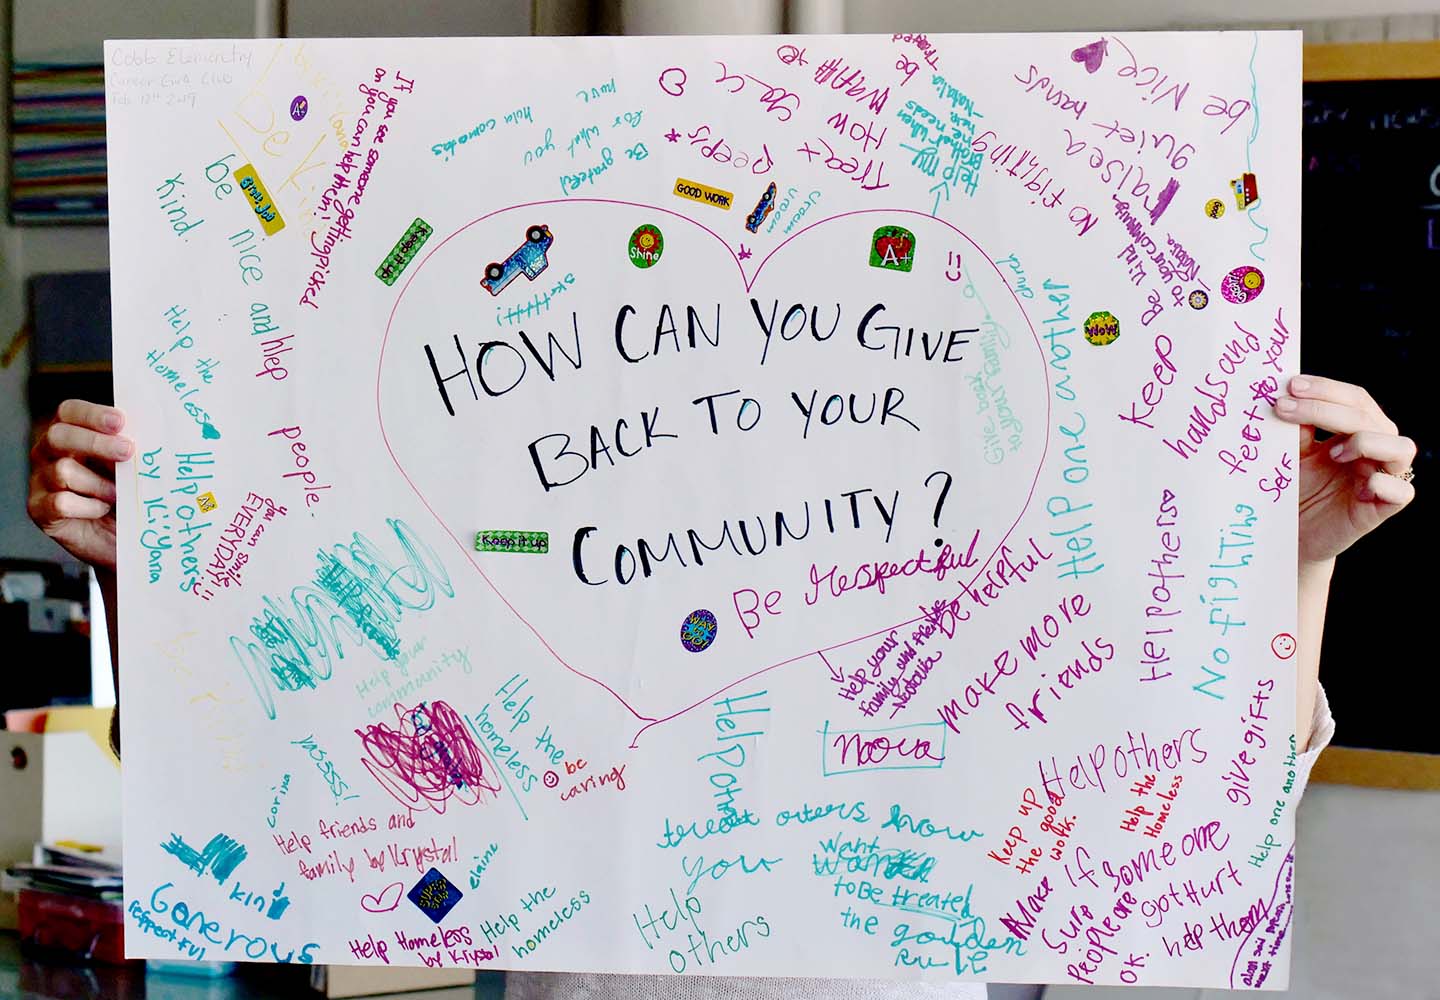 Cobb Elementry
Career Girls Club
Feb 12th 2019
HOW CAN YOU GIVE
BACK TO YOUR
COMMUNITY?
Be Respectful
Keep it up
WAY TO GO!
Keep it up
Shine
GOOD WORK
A+
If you see someone getting picked
on you can help them!
Be Kind
be nice and hlep people.
Kind.
Help the
Homeless
Help others
by Ki'yana
You can smile
EVERYDAY!
hola comotis
Be grateful
for what you
have
Treat
peeps
How
WAAH
be
Treated
Help my
Brother when
he needs
help
Natalia
No fighting
raise a
quiet hands
be Nice
Be kind
to your community
church
Give back
to your family
Help one another
Keep
hands and
feet to your
self
Help others
No fighting
Be helpful
Help your
family and friends
-Natalia
make more
friends
give gifts
Help others
Keep up
the good
work.
Help the
Homeless
Help one another
Make
Sure
People are
OK.
if someone
got hurt
help them
Help your
community
Help the
homeless
be
caring
yassss!
corina
Help friends and
family by Krystal
elaine
kind
Generous
respectful
Help Homeless
by Krystal
Help the
homeless
Help others
treat oters how
you
Want
to Be treated
the goulden
Rule
Help
others